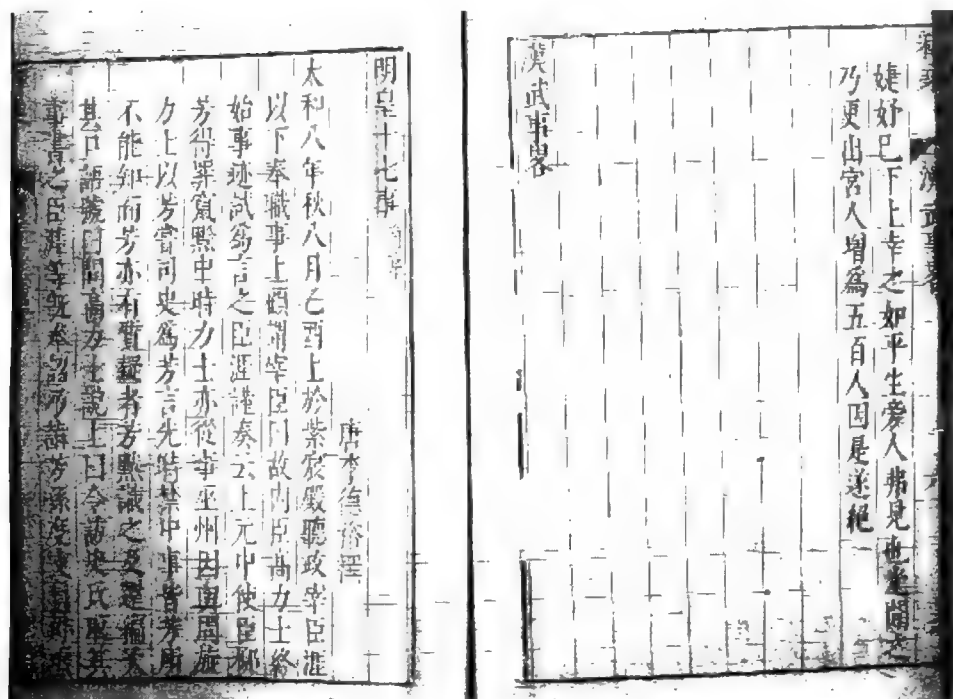 婕妤巳下上幸之如平生旁人弗見也
乃更出宮人增爲五百人因是遂絕
漢武事畧
明皇十七事
唐李德裕
太和八年秋八月乙酉上於紫宸殿聽政宰臣涯
以下奉職事上顧謂宰臣曰故内臣高力士終
始事迹試爲言之臣涯謹奏云上元中使臣柳
芳得罪竄黔中時力士亦從事巫州因與周旋
力士以芳嘗司史爲芳言先時禁中事皆芳所
不能知而芳亦有質疑者芳黙識之及還編次
其 號曰問高力士說上曰令訪史氏取其
書 臣涯等既奉詔乃 芳孫度